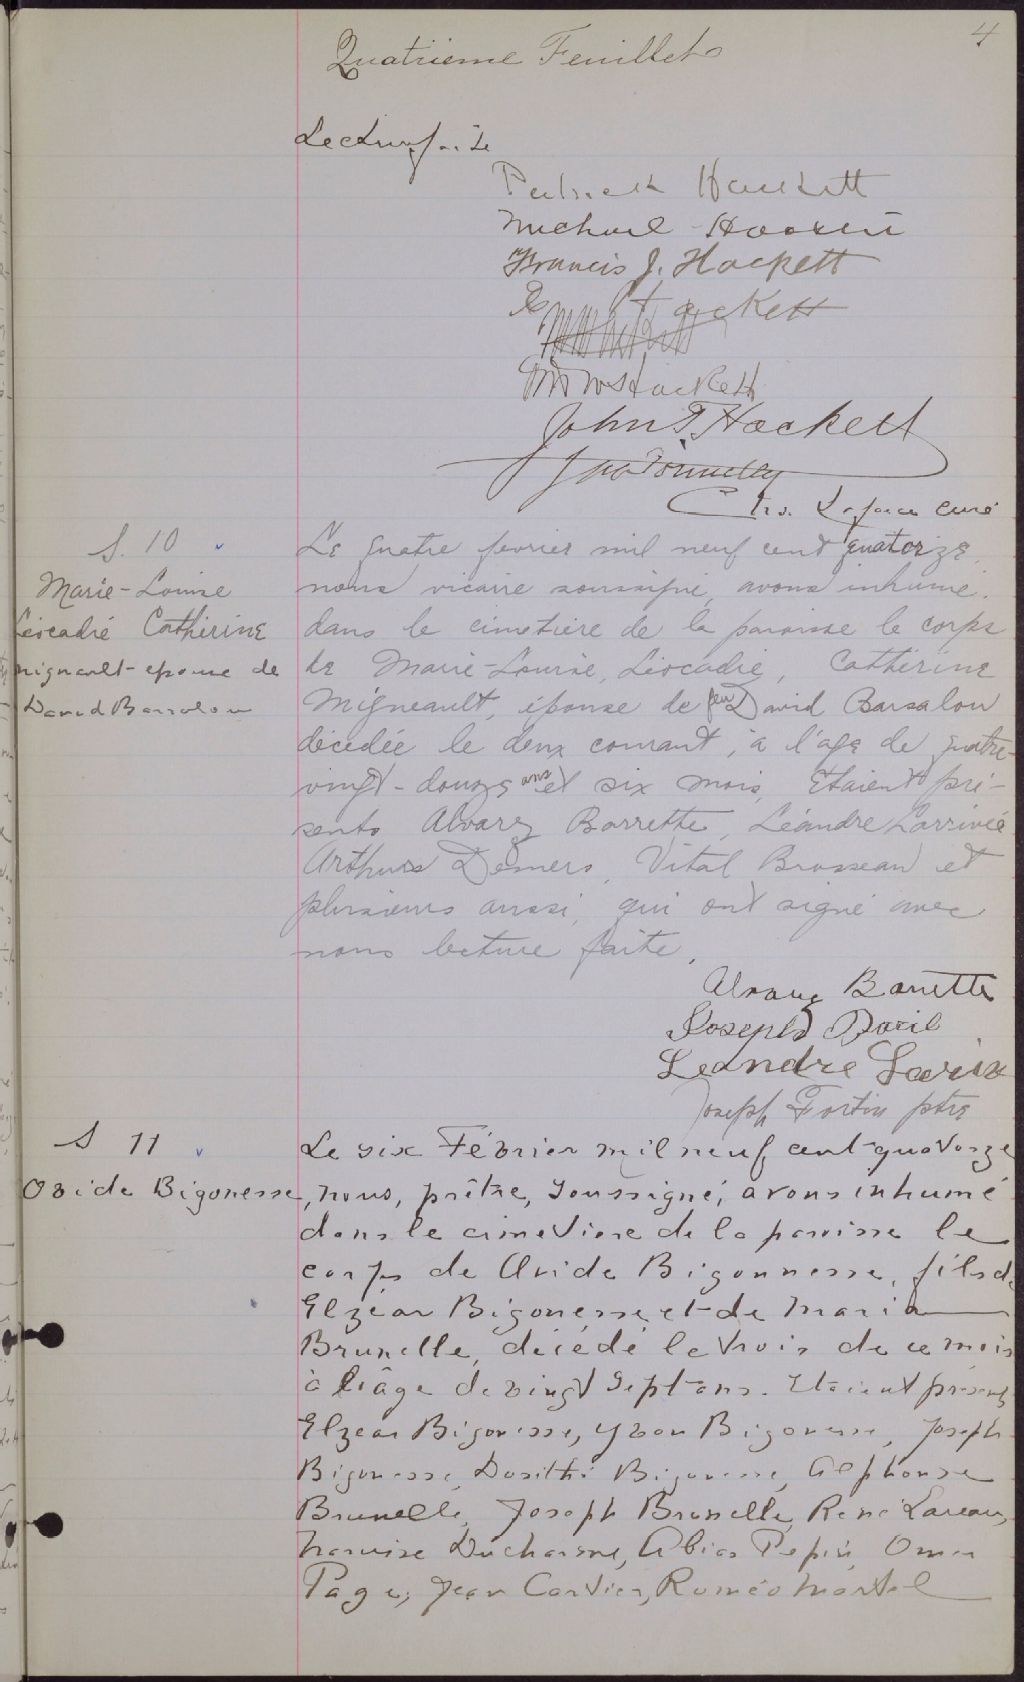 4
Quatrième Feuillet
Lecture faite
Patrick Hackett
Michael Hackett
Francis J. Hackett
Hackett
Hackett
John F. Hackett
Jno Donnelly
Chs. Laforce curé
S. 10
Marie-Louise
Léocadie Catherine
Migneault - épouse de
David Barsalou
Le quatre février mil neuf cent quatorze,
nous vicaire soussigné, avons inhumé
dans le cimetière de la paroisse le corps
de Marie-Louise, Léocadie, Catherine
Migneault, épouse de feu David Barsalou
décédée le deux courant, à l'âge de quatre-
vingt-douze ans et six mois. Etaient pré-
sents Alvarez Barrette, Léandre Larrivée
Arthur Demers, Vital Brosseau et
plusieurs aussi, qui ont signé avec
nous lecture faite.
Alvarez Barrette
Joseph
Leandre Larivé
Joseph Fortin ptre
S 11
Ovide Bigonesse
Le six Février mil neuf cent quatorze
, nous, prêtre, soussigné, avons inhumé
dans le cimetière de la paroisse le
corps de Ovide Bigonnesse, fils de
Elzéar Bigonesse et de Maria
Brunelle, décédé le trois de ce mois
à l'âge de vingt sept ans. Etaient présents
Elzéar Bigonesse, Yvon Bigonesse, Joseph
Bigonesse, Dosithé Bigonesse, Alphonse
Brunelle, Joseph Brunelle, René Lareau,
Narcisse Ducharme, Pepin, Omer
Page, Jean Cartier, Roméo Martel